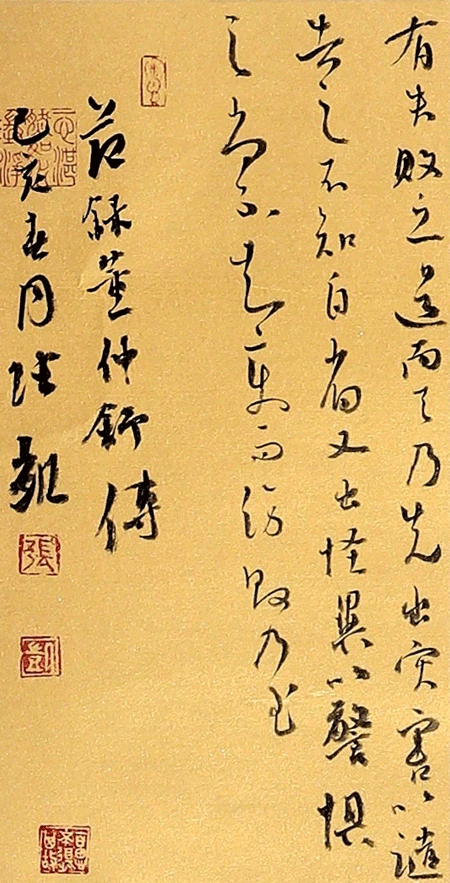 有失败之道而天乃先出灾害以谴
告之不知自省又出怪異以警惧
之尚不知变而伤败乃至
节録董仲舒傳
己亥春月
張